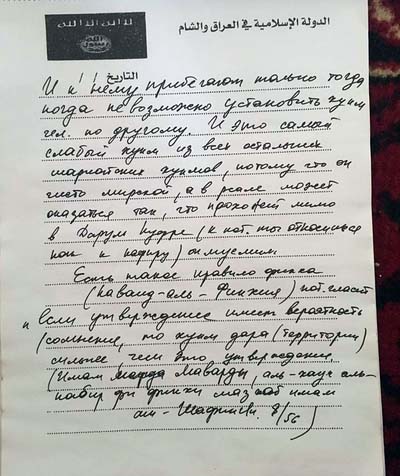 الدولة الإسلامية في العراق والشام
لا اله الا الله
الله رسول محمد
التاريخ
И к нему прибегают только тогда
когда не возможно установить хукм
чел. по другому. И это самый
слабый хукм из всех остальных
шариатских хукмов, потому что он
чисто мирской, а в ахле может
оказаться так, что прохожий мимо
в Дарул куфре (к кот. мы относимся
как к кафиру) он муслим
Есть такое правило фикха
(каваид-аль-Фикхия) кот. гласит
" Если утверждение имеет вероятность
(сомнение, то хукм дара (территории)
сильнее, чем это утверждение
(Имам Маварди, аль-хауи аль-
кабир фи фикхи мазхаб имам
аш-Шафии. 8/56)